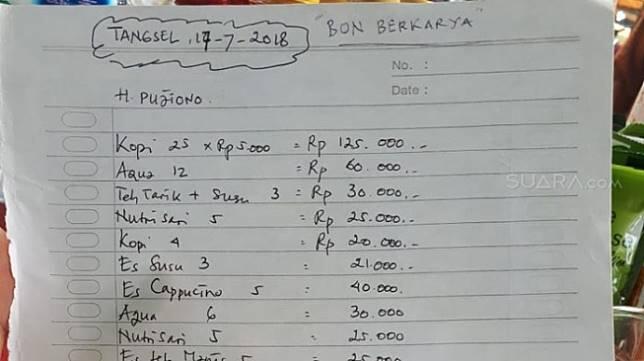 TANGSEL, 17-7-2018 "BON BERKARYA"
No. :
Date :
H. PUJIONO.
Kopi 25 x Rp 5.000 = Rp 125.000.-
Aqua 12 = Rp 60.000.-
Teh Tarik + Susu 3 = Rp 30.000.-
Nutri Sari 5 = Rp 25.000.-
Kopi 4 = Rp 20.000.-
Es Susu 3 : 21.000.-
Es Cappucino 5 : 40.000.
Aqua 6 : 30.000
Nutri Sari 5 : 25.000
Es teh Manis 5 : 25.000
SUARA.COM